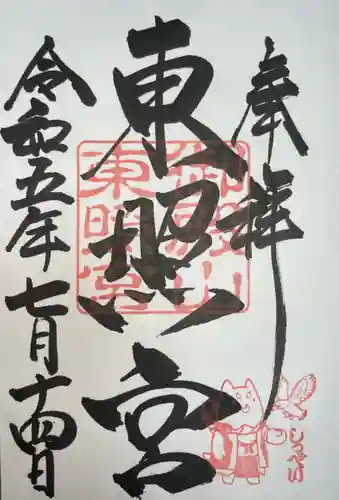 奉拝
東照宮
令和五年七月十四日
御殿山
東照宮